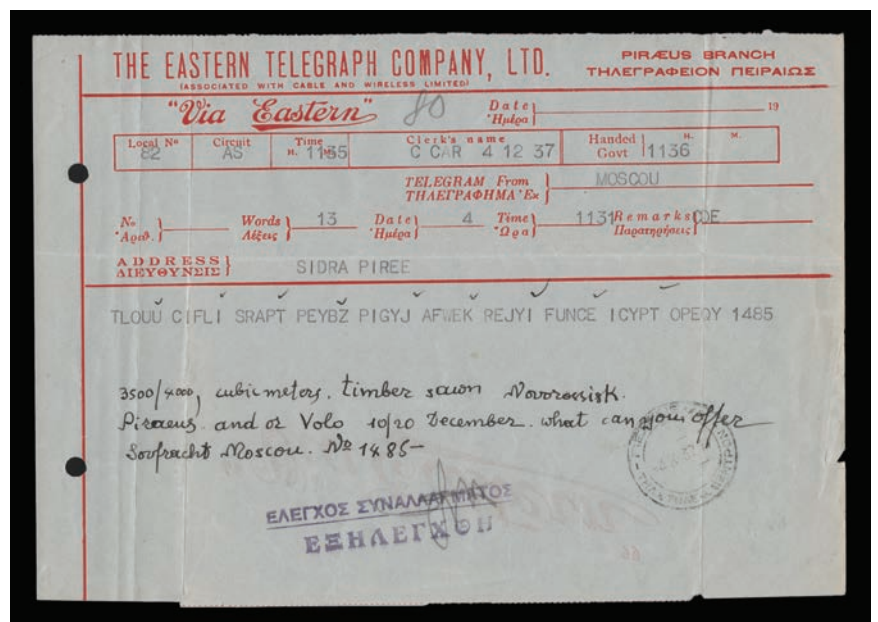 THE EASTERN TELEGRAPH COMPANY, LTD.
(ASSOCIATED WITH CABLE AND WIRELESS LIMITED)
PIRÆUS BRANCH
ΤΗΛΕΓΡΑΦΕΙΟΝ ΠΕΙΡΑΙΩΣ
"Via Eastern" 80 Date Ἡμέρα 19
Local No 82 Circuit AS Time H. M. 1135 Clerk's name C CAR 4 12 37 Handed Govt H. M. 1136
TELEGRAM From MOSCOU
ΤΗΛΕΓΡΑΦΗΜΑ Ἐξ
No Words 13 Date 4 Time 1131 Remarks CDE
Ἀριθ. Λέξεις Ἡμέρα Ὥρα Παρατηρήσεις
ADDRESS SIDRA PIREE
ΔΙΕΥΘΥΝΣΙΣ
TLOUU CIFLI SRAPT PEYBZ PIGYJ AFWEK REJYI FUNCE ICYPT OPEQY 1485
3500/4000, cubic meters, timber sawn Novorossisk.
Piraeus and or Volo 10/20 December. what can you offer
Sovfracht Moscou. No 1485-
ΕΛΕΓΧΟΣ ΣΥΝΑΛΛΑΓΜΑΤΟΣ
ΕΞΗΛΕΓΧΘΗ